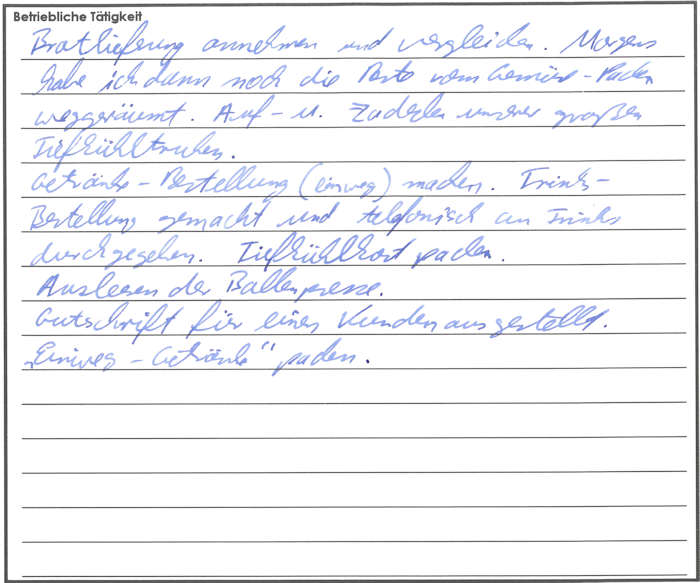 Betriebliche Tätigkeit
Brotlieferung annehmen und vergleichen. Morgens
habe ich dann noch die Reste vom Gemüse-Packen
weggeräumt. Auf- u. Zudecken unserer großen
Tiefkühltruhen.
Getränke-Bestellung (einweg) machen. Trinks-
Bestellung gemacht und telefonisch an Trinks
durchgegeben. Tiefkühlkost packen.
Ausleeren der Ballenpresse.
Gutschrift für einen Kunden ausgestellt.
„Einweg-Getränke" packen.